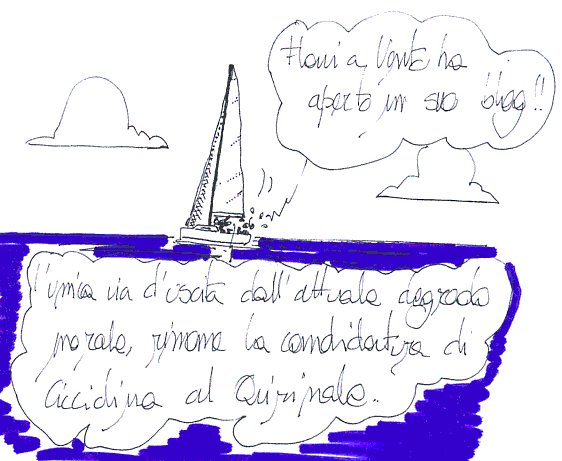 Flavia Vento ha
aperto un suo blog!!
l'unica via d'uscita dall'attuale degrado
morale, rimane la candidatura di
Cicciolina al Quirinale.